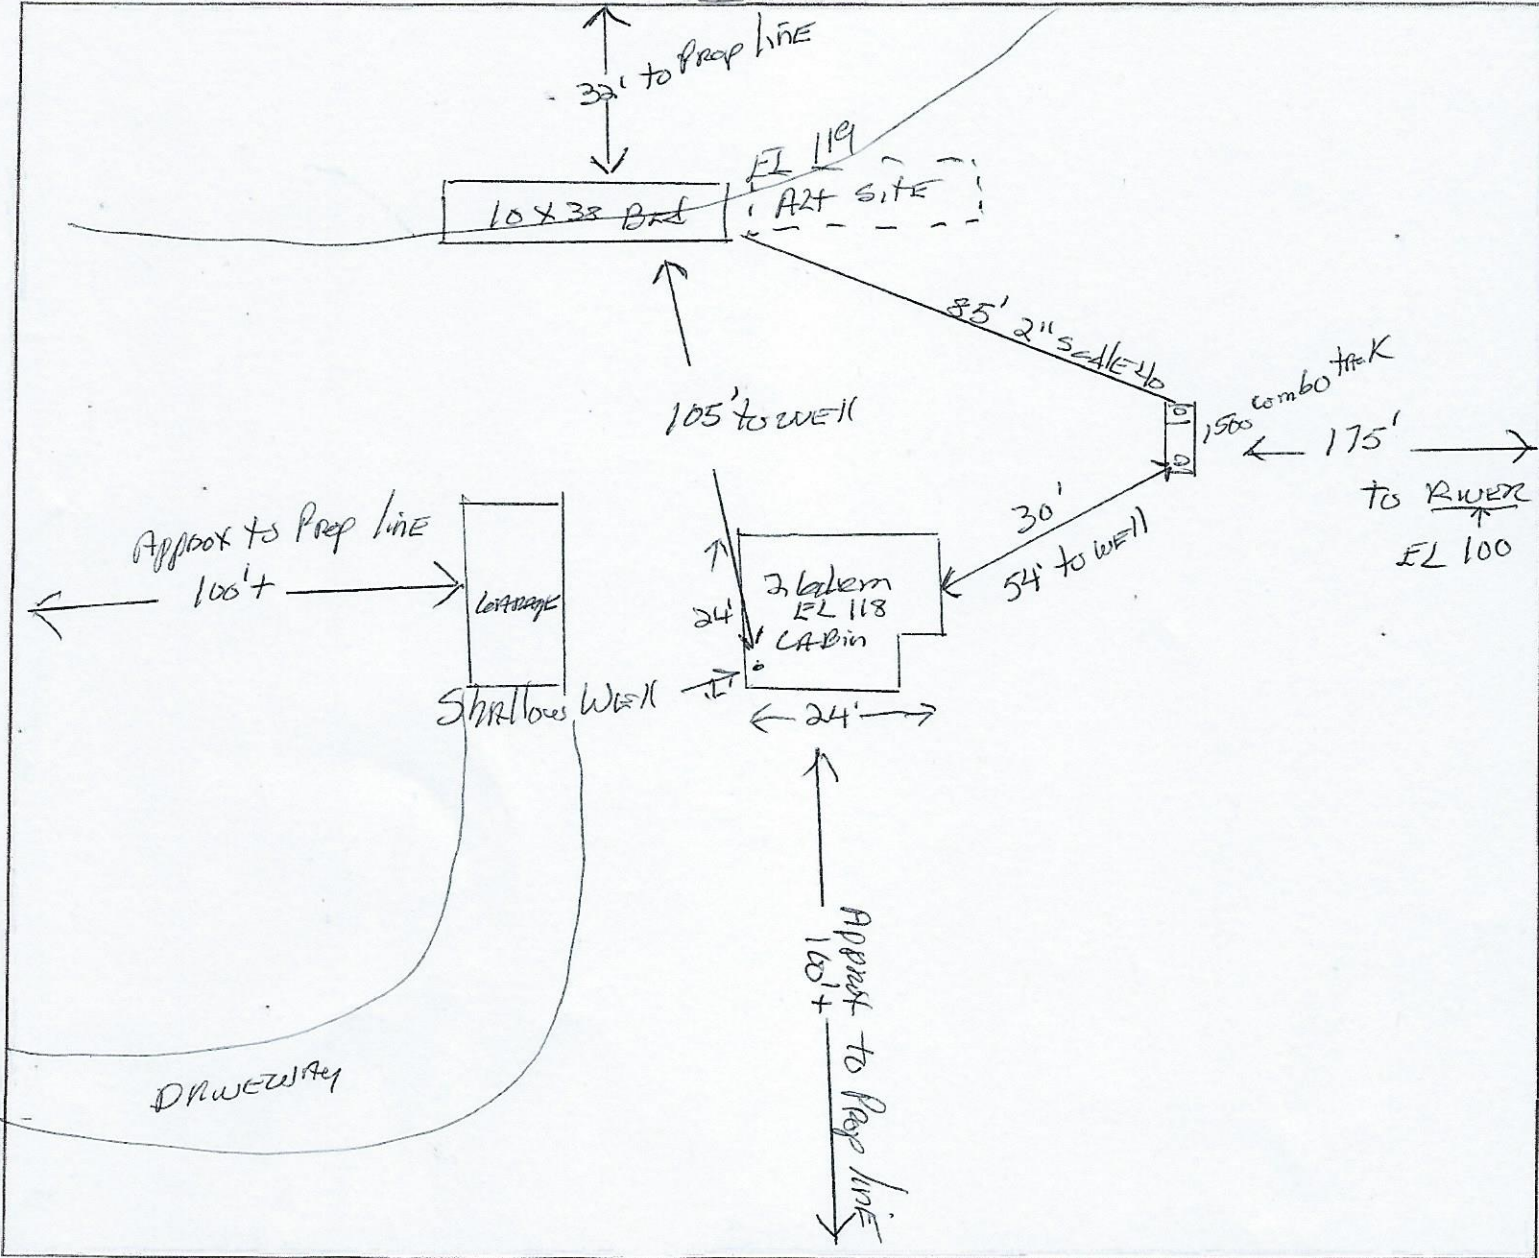 32' to Prop line
EL 119
Alt Site
10 X 38 Bed
85' 2" Scdle 40
1500 combo tank
175'
to River
EL 100
105' to well
30'
54' to well
Approx to Prop line
100'+
Garage
2 bdrm
EL 118
Cabin
24'
Shallow Well
24'
Approx to Prop line
100'+
Driveway